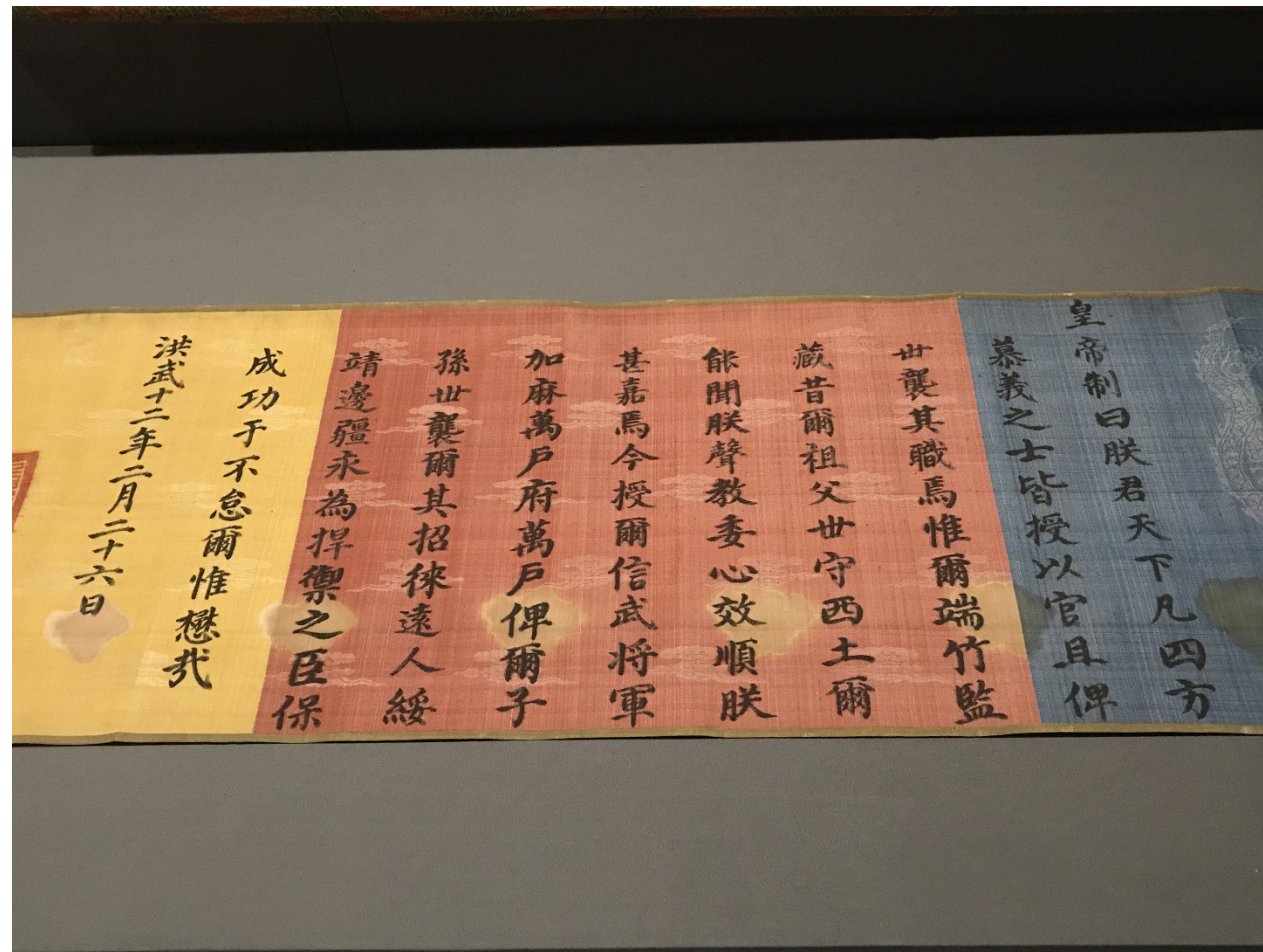 皇帝制曰朕君天下凡四方
慕義之士皆授以官且俾
世襲其職焉惟爾端竹監
藏昔爾祖父世守西土爾
能聞朕聲教委心效順朕
甚嘉焉今授爾信武将軍
加麻萬戶府萬戶俾爾子
孫世襲爾其招徠遠人綏
靖邊疆永為捍禦之臣保
成功于不怠爾惟懋哉
洪武十二年二月二十六日